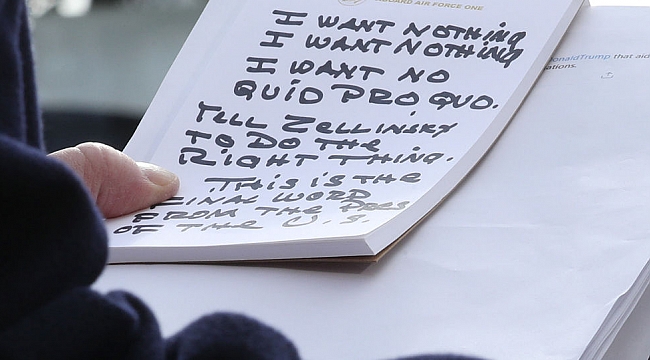 ABOARD AIR FORCE ONE
I WANT NOTHING
I WANT NOTHING
I WANT NO
QUID PRO QUO.
TELL ZELLINSKY
TO DO THE
RIGHT THING.
.THIS IS THE
FINAL WORD
FROM THE PRES
OF THE U.S.
onaldTrump that aid
ations.